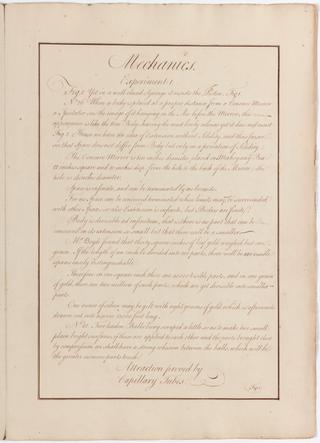 Mechanics.
Experiment 1
Fig. 2 Yet in a well closed Syringe it resists the Piston, Fig 1.
No. 26. When a body is placed at a proper distance from a Concave Mirror
a Spectator sees the image of it hanging in the Air before the Mirror, this
appearance is like the true Body having the same body whence yet it does not resist
Fig 2. Hence we have the idea of Extension without Solidity, and thus far
so that Space does not differ from Body but only in a privation of Solidity.
The Concave Mirror is ten inches diameter placed in Mahogany Box
12 inches square and 10 inches deep from the hole to the back of the Mirror, the
hole is inches diameter.
Space is infinite, and can be terminated by no bounds.
For no Space can be conceived terminated whose limits may be surrounded
with other Space, so also Extension is infinite, but Bodies are finite.
Body is divisible ad infinitum, that is there is no part that can be
conceived in its extension so small but that there will be a smaller
Mr. Boyle found that thirty square inches of leaf gold weighed but one
Grain. If the length of an inch be divided into 200 parts, these will be
separately distinguishable.
Therefore in one square inch there are 40000 visible parts, and in one grain
of gold, there are two millions of such parts, which are yet divisible into smaller
parts.
One ounce of silver may be gilt with eight grains of gold which is afterwards
drawn out into a wire 13000 feet long.
No. 27. Two leaden Balls being scraped a little so as to make two small
plain bright surfaces, if these are applied to each other and the parts brought close
by compression, we shall have a strong cohesion between the balls, which will be
the greater as more parts touch.
Attraction proved by
Capillary Tubes.